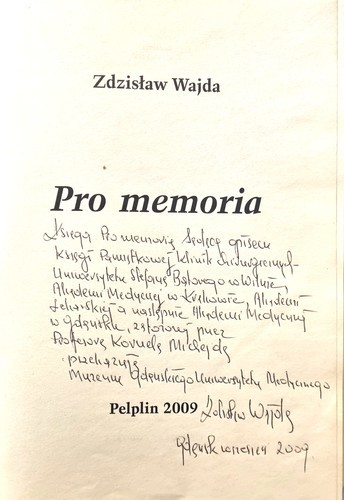 Zdzisław Wajda
Pro memoria
Księga Pro memoria będącą opisem
Księgi Pamiątkowej Klinik Chirurgicznych
Uniwersytetu Stefana Batorego w Wilnie,
Akademii Medycznej w Krakowie, Akademii
Lekarskiej a następnie Akademii Medycznej
w Gdańsku, założonej przez
Profesora Kornela Michejdę
przekazuję
Muzeum Gdańskiego Uniwersytetu Medycznego
Pelplin 2009 Zdzisław Wajda
Gdańsk wrzesień 2009